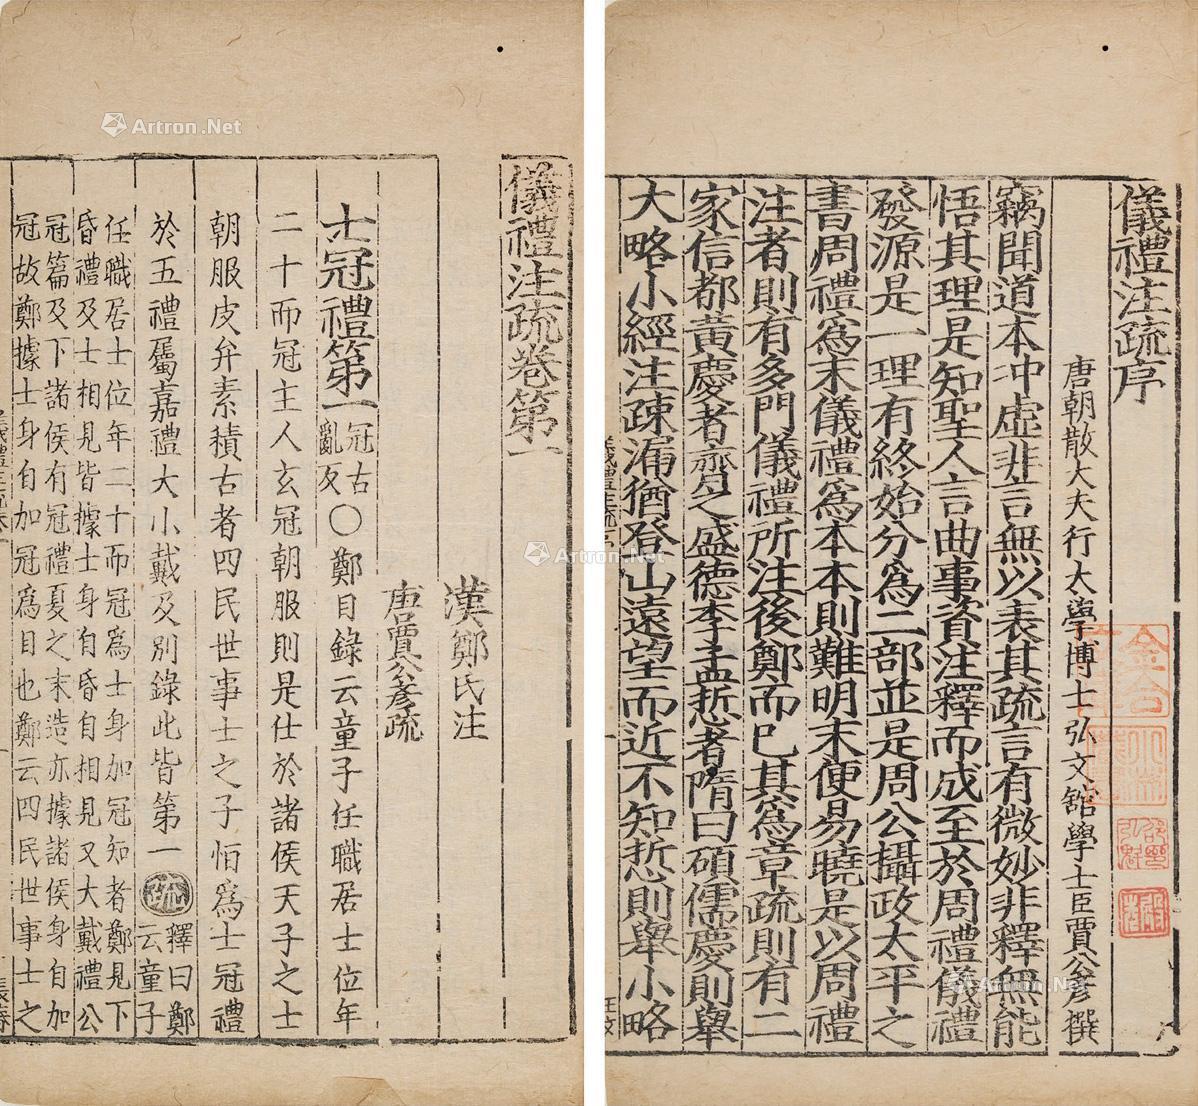 儀禮注疏序
唐朝散大夫行太學博士弘文館學士臣賈公彥撰
竊聞道本冲虛非言無以表其疏言有微妙非釋無能
悟其理是知聖人言曲事資注釋而成至於周禮儀禮
發源是一理有終始分爲二部並是周公攝政太平之
書周禮爲末儀禮爲本本則難明末便易曉是以周禮
注者則有多門儀禮所注後鄭而已其爲章疏則有二
家信都黃慶者齊之盛德李孟悊者隋曰碩儒慶則舉
大略小經注疎漏猶登山遠望而近不知悊則舉小略
儀禮注疏卷第一
漢鄭氏注
唐賈公彥疏
士冠禮第一冠古亂反〇鄭目錄云童子任職居士位年
二十而冠主人玄冠朝服則是仕於諸侯天子之士
朝服皮弁素積古者四民世事士之子恒爲士冠禮
於五禮屬嘉禮大小戴及別錄此皆第一疏釋曰鄭云童子
任職居士位年二十而冠爲士身加冠知者鄭見下
昏禮及士相見皆據士身自昏自相見又大戴禮公
冠篇及下諸侯有冠禮夏之末造亦據諸侯身自加
冠故鄭據士身自加冠爲目也鄭云四民世事士之
Artron.Net
Artron.Net
Artron.Net